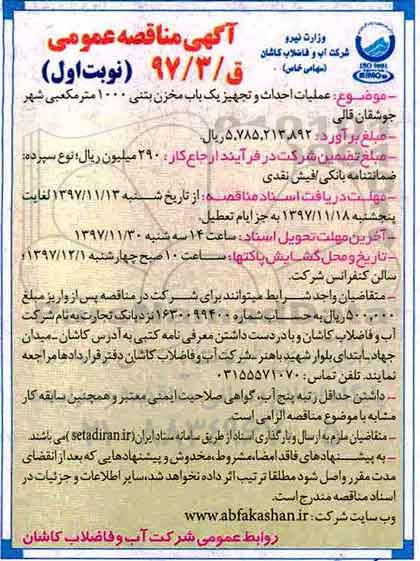 آگهی مناقصه عمومی
ق/۹۷/۳ (نوبت اول)
وزارت نیرو
شرکت آب و فاضلاب کاشان
(سهامی خاص)
- موضوع: عملیات احداث و تجهیز یک باب مخزن بتنی ۱۰۰۰ متر مکعبی شهر
جوشقان قالی
- مبلغ برآورد: ۵,۷۸۵,۲۱۳,۸۹۲ ریال.
- مبلغ تضمین شرکت در فرآیند ارجاع کار: ۲۹۰ میلیون ریال؛ نوع سپرده:
ضمانتنامه بانکی/فیش نقدی
- مهلت دریافت اسناد مناقصه: از تاریخ شنبه ۱۳۹۷/۱۱/۱۳ لغایت
پنجشنبه ۱۳۹۷/۱۱/۱۸ به جز ایام تعطیل.
- آخرین مهلت تحویل اسناد: ساعت ۱۴ سه شنبه ۱۳۹۷/۱۱/۳۰
- تاریخ و محل گشایش پاکتها: ساعت ۱۰ صبح چهارشنبه ۱۳۹۷/۱۲/۱؛
سالن کنفرانس شرکت.
- متقاضیان واجد شرایط میتوانند برای شرکت در مناقصه پس از واریز مبلغ
۵۰۰,۰۰۰ ریال به حساب شماره ۱۶۳۰۰۹۹۴۰۰ نزد بانک تجارت به نام شرکت
آب و فاضلاب کاشان و با در دست داشتن معرفی نامه کتبی به آدرس کاشان ـ میدان
جهاد ـ ابتدای بلوار شهید باهنر ـ شرکت آب و فاضلاب کاشان دفتر قراردادها مراجعه
نمایند. تلفن تماس: ۰۳۱۵۵۵۷۱۰۷۰
- داشتن حداقل رتبه پنج آب، گواهی صلاحیت ایمنی معتبر و همچنین سابقه کار
مشابه با موضوع مناقصه الزامی است.
- متقاضیان ملزم به ارسال و بارگذاری اسناد از طریق سامانه ستاد ایران (setadiran.ir) می باشند
- به پیشنهادهای فاقد امضاء، مشروط، مخدوش و پیشنهادهایی که بعد از انقضای
مدت مقرر واصل شود مطلقا ترتیب اثر داده نخواهد شد، سایر اطلاعات و جزئیات در
اسناد مناقصه مندرج است.
وب سایت شرکت: www.abfakashan.ir
روابط عمومی شرکت آب و فاضلاب کاشان